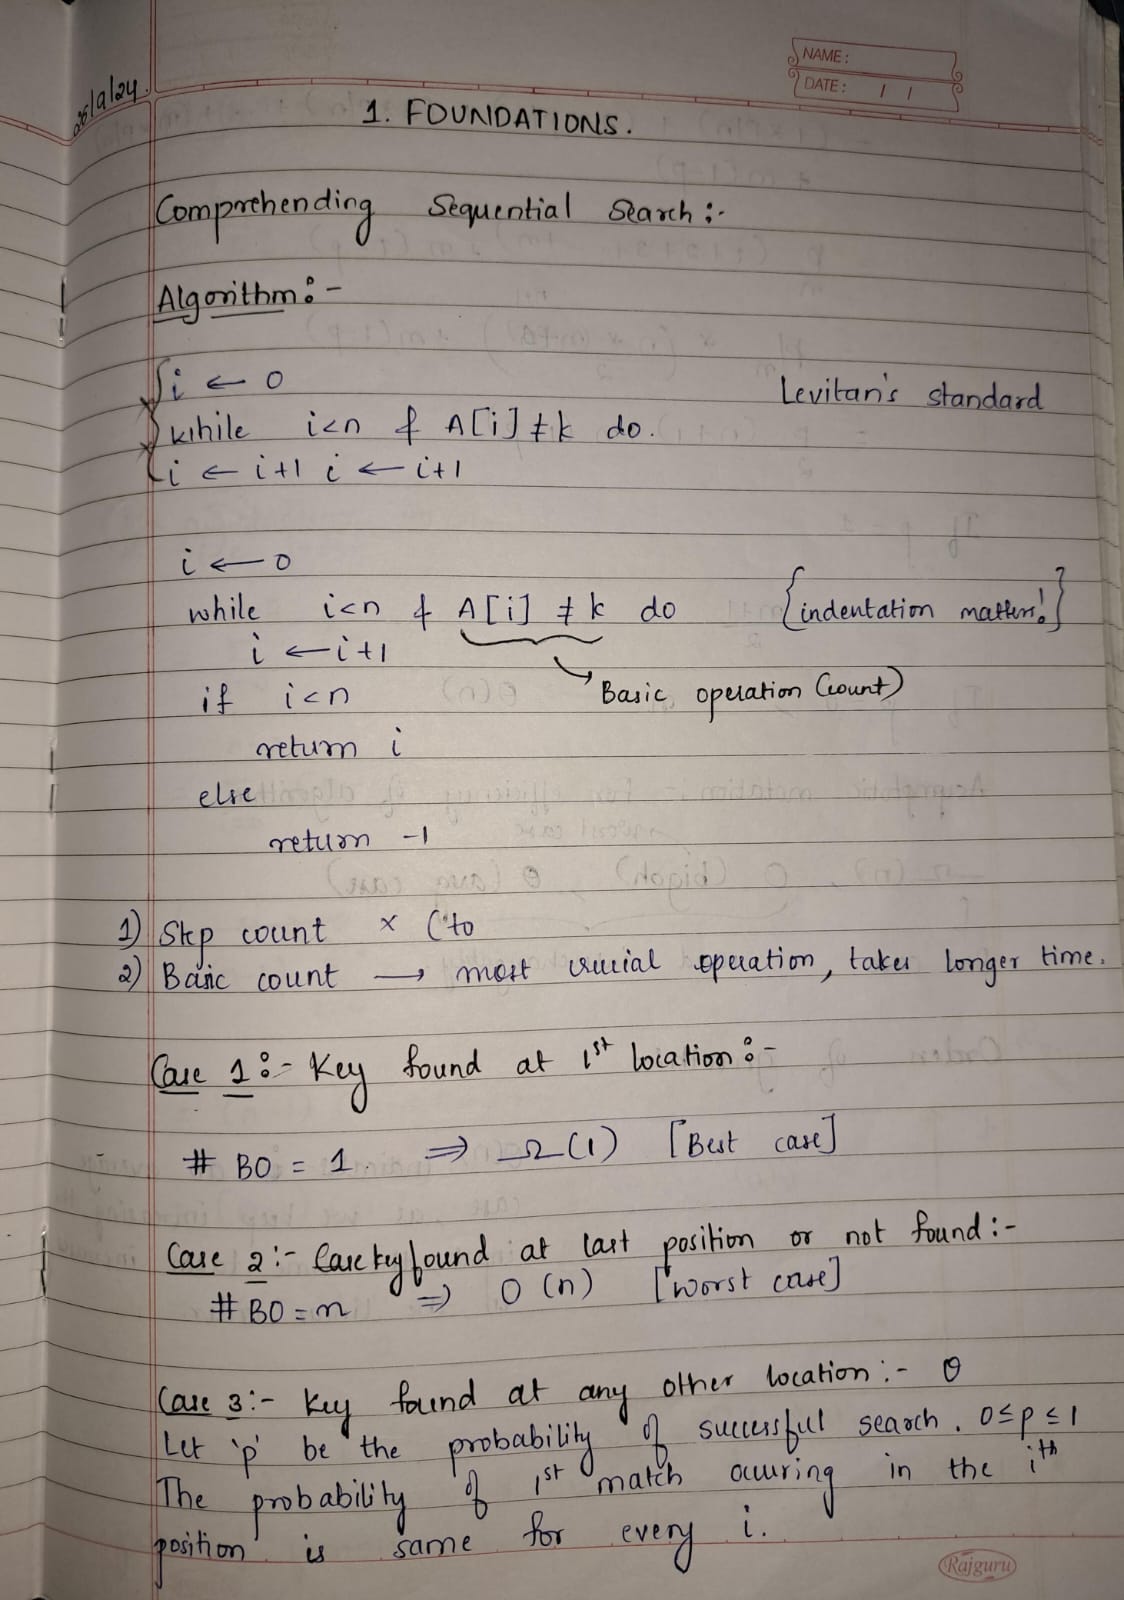 NAME:
DATE: / /
25/9/24.
1. FOUNDATIONS.
Comprehending Sequential Search :-
Algorithm :-
i ← 0
Levitan's standard
while i<n & A[i] ≠ k do.
i ← i+1 i ← i+1
i ← 0
while i<n & A[i] ≠ k do {indentation matters!}
i ← i+1
Basic operation (count)
if i<n
return i
else
return -1
1) Step count × (to
2) Basic count → most crucial operation, takes longer time.
Case 1 :- Key found at 1st location :-
# BO = 1. ⇒ Ω(1) [Best case]
Case 2 :- Case key found at last position or not found :-
# BO = n ⇒ O (n) [worst case]
Case 3 :- Key found at any other location :- θ
Let 'p' be the probability of successful search. 0≤p≤1
The probability of 1st match occuring in the ith
position is same for every i.
Rajguru